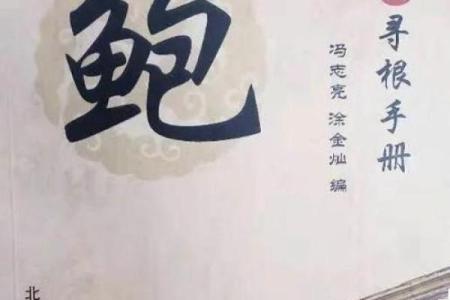 鲍
寻根手册
冯志亮 涂金灿 编
北